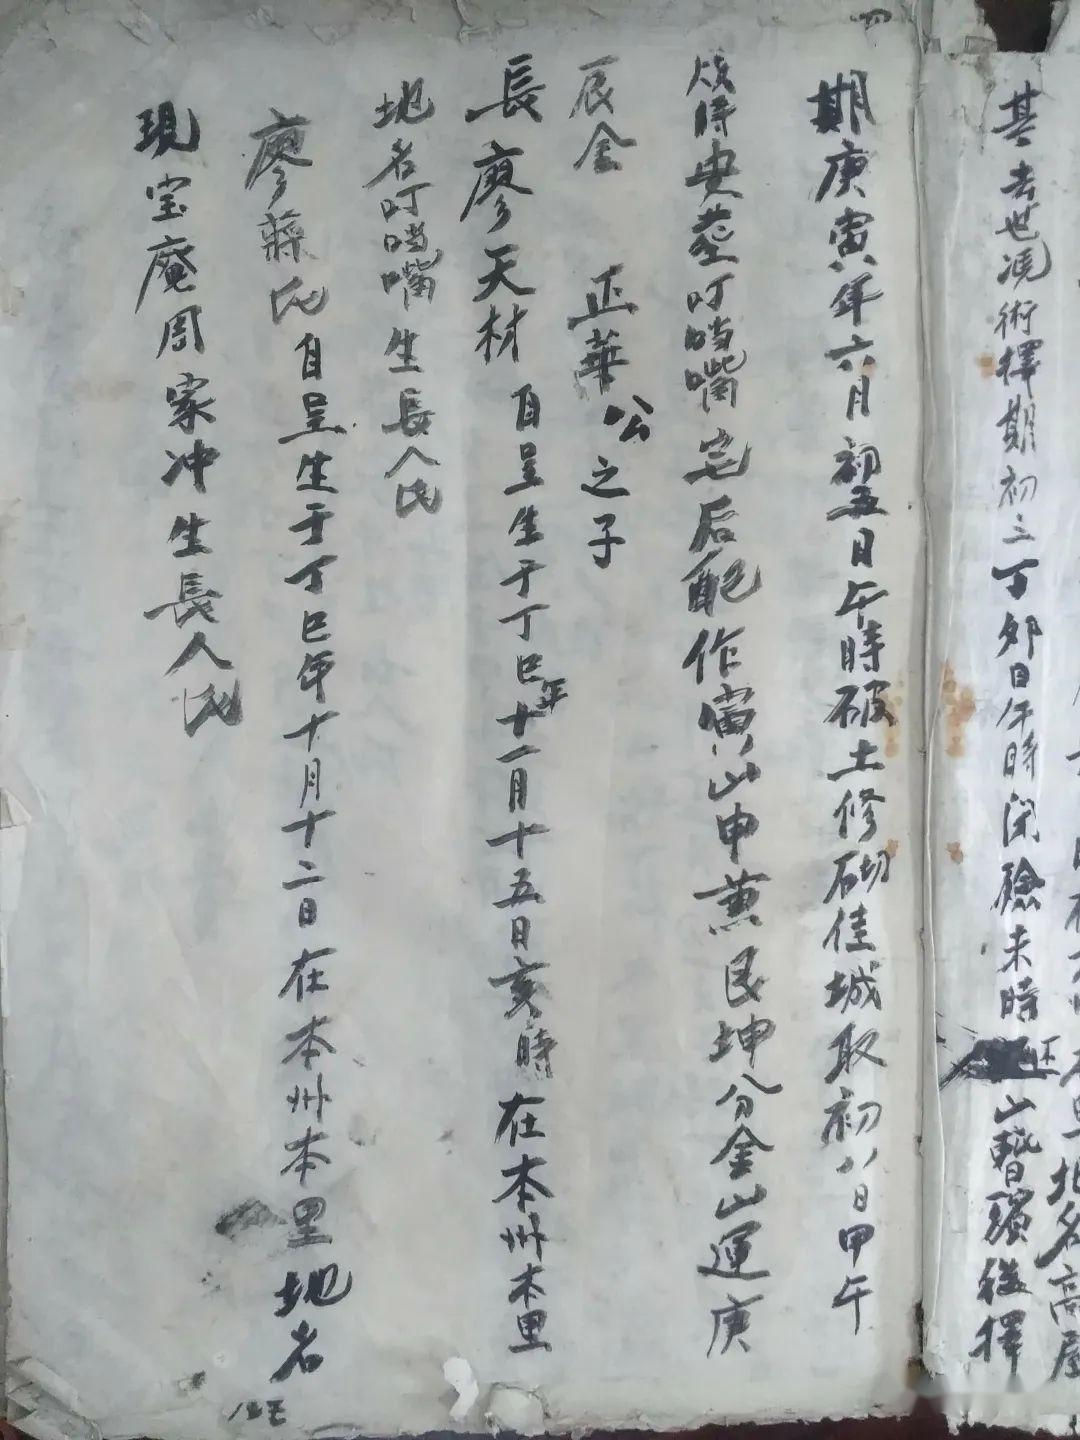 名高屋
基去世凴術擇期初三丁夘日午時闭殮未時正山暫殯後擇
四
期庚寅年六月初五日午時破土修砌佳城取初八日甲午
戌時安塟叮噹嘴宅后配作寅山申兼艮坤分金山運庚
辰金 正華公之子
長廖天材 自呈生于丁巳年十一月十五日亥時在本州本里
地名叮噹嘴生長人氏
廖蘇氏自呈生于丁巳年十月十二日在本州本里地名
現宝庵周家冲生長人氏